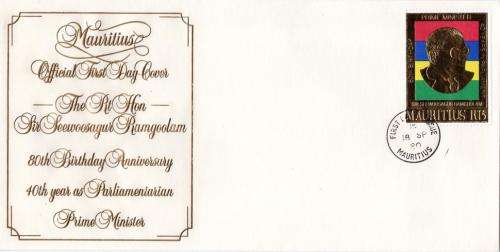 Mauritius
Official First Day Cover
The Rt Hon
Sir Seewoosagur Ramgoolam
80th Birthday Anniversary
40th year as Parliamentarian
Prime Minister
PRIME MINISTER
SIR SEEWOOSAGUR RAMGOOLAM
MAURITIUS R15
FIRST DAY ISSUE
18 SP
80
MAURITIUS